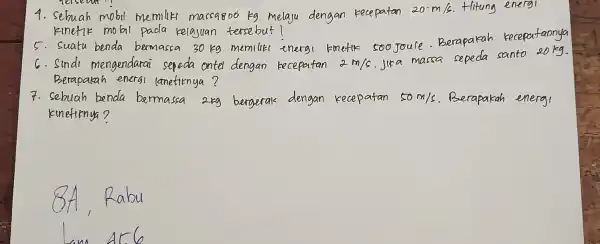 4. Sebuah mobil memiliki massa 800 kg melaju dengan kecepatan 20 m/s. Hitung energi
kinetik mobil pada kelajuan tersebut!
5. Suatu benda bermassa 30 kg memiliki energi kinetik 500 joule. Berapakah kecepatannya
6. Sindi mengendarai sepeda onta dengan kecepatan 2 m/s. jika massa sepeda santo 20 kg.
Berapakah energi kinetiknya ?
7. Sebuah benda bermassa 2 kg bergerak dengan kecepatan 50 m/s. Berapakah energi
kinetiknya ?
8A, Rabu
Jam 4.5.6